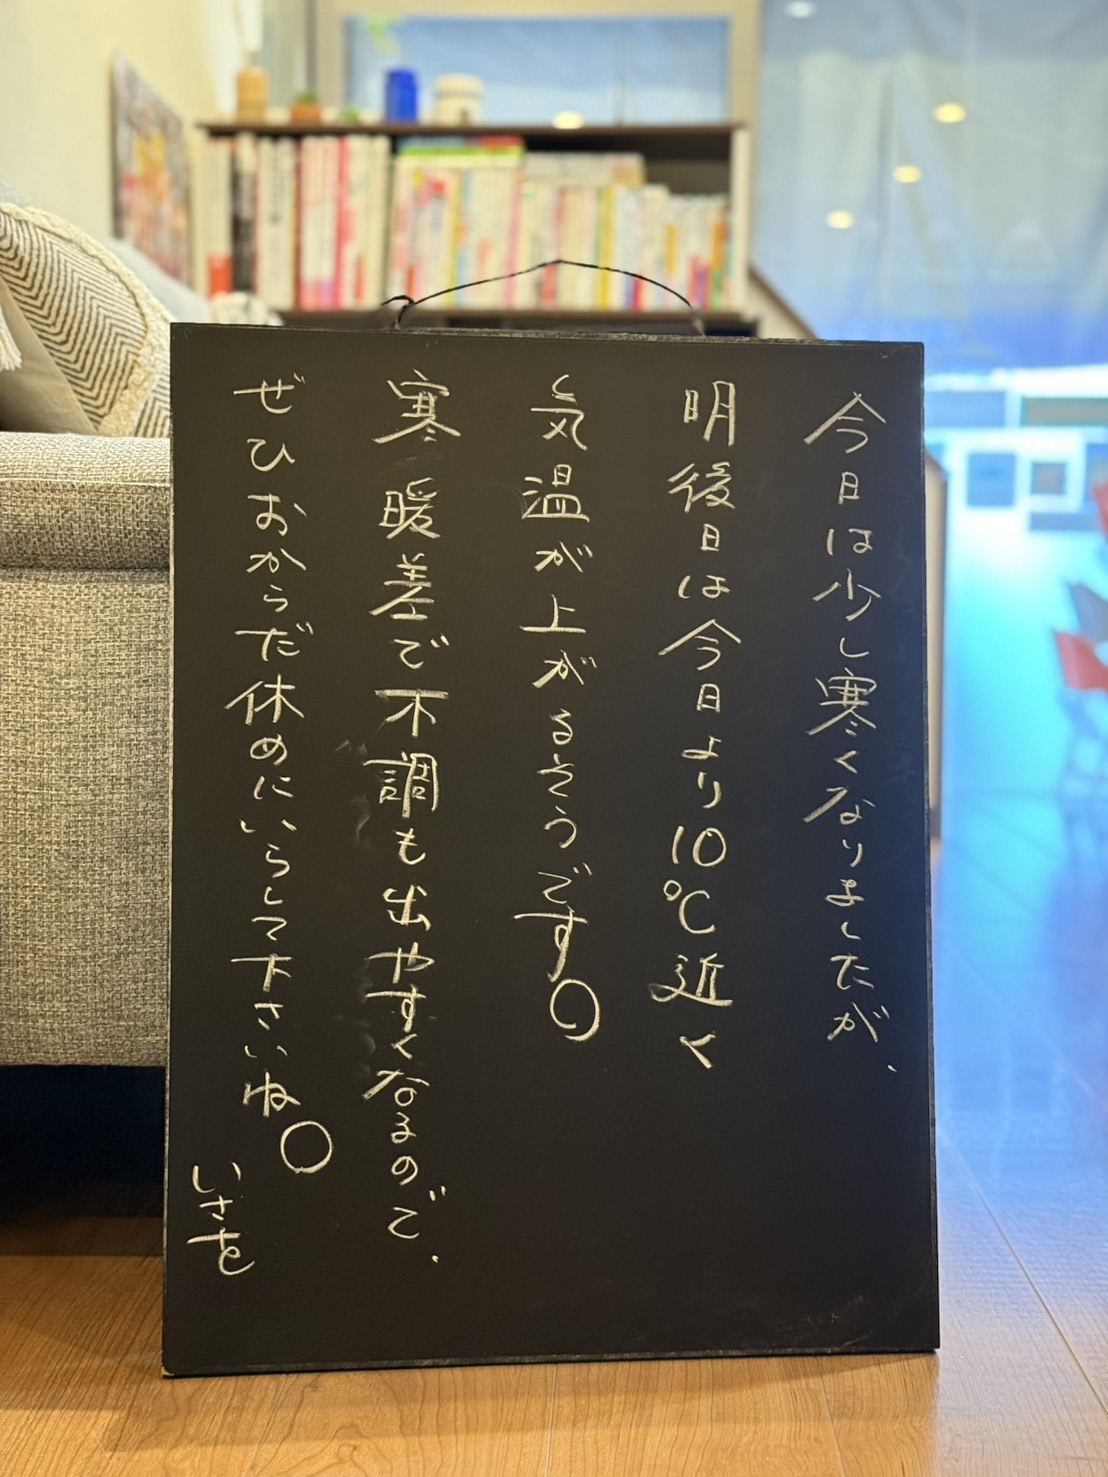 今日は少し寒くなりましたが、
明後日は今日より10℃近く
気温が上がるそうです。
寒暖差で不調も出やすくなるので、
ぜひおからだ休めにいらして下さいね。
いさを